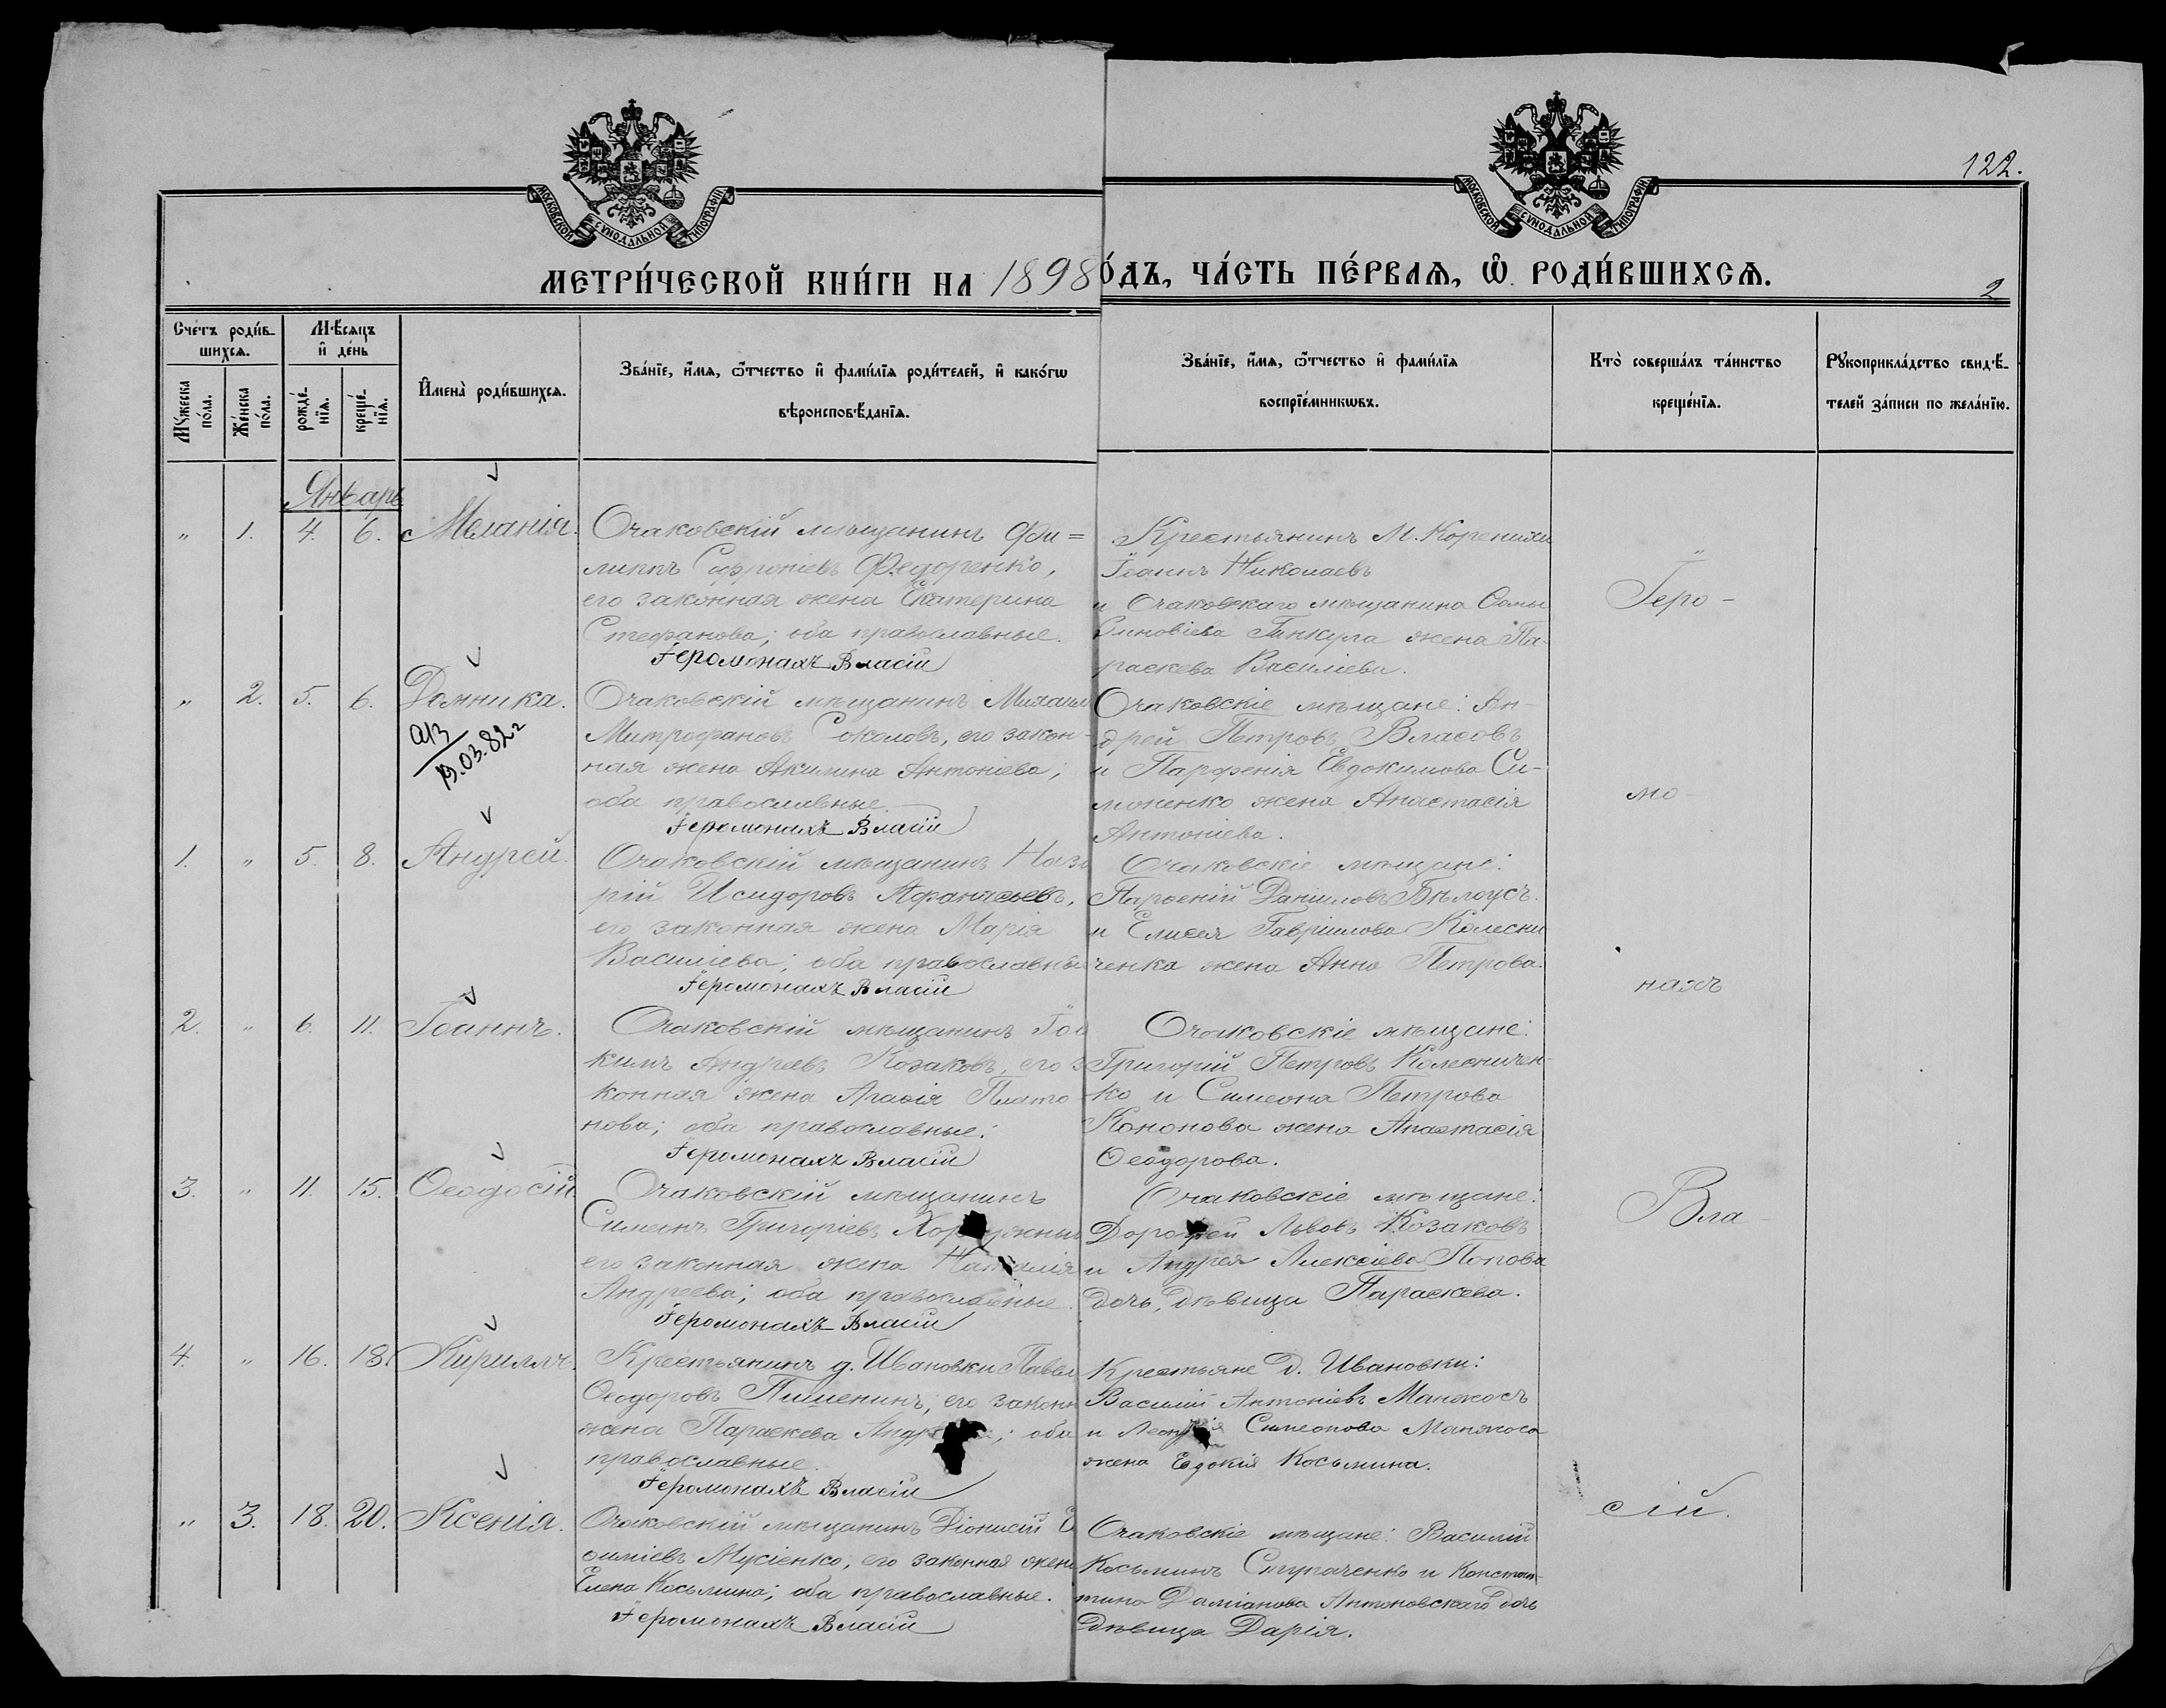 МОСКОВСКОЙ СУНОДАЛЬНОЙ ТИПОГРАФІИ
МОСКОВСКОЙ СУНОДАЛЬНОЙ ТИПОГРАФІИ
122.
МЕТРИ́ЧЕСКОЙ КНИ́ГИ НА 1898
О́ДЪ, ЧА́СТЬ ПЕ́РВАѦ, Ѡ РОДИ́ВШИХСѦ.
2
Сче́тъ роди́в-
шихсѧ.
Мѣ́сѧцъ
и҆ де́нь
Мꙋ́жеска
по́ла.
Же́нска
по́ла.
рожде́-
нїѧ.
креще́-
нїѧ.
И҆мена̀ роди́вшихсѧ.
Зва́нїе, и҆́мѧ, ѻ҆́тчество и҆ фами́лїѧ роди́телей, и҆ како́гѡ
вѣроисповѣ́данїѧ.
Зва́нїе, и҆́мѧ, ѻ҆́тчество и҆ фами́лїѧ
воспрїе́мникѡвъ.
Кто̀ соверша́лъ та́инство
креще́нїѧ.
Рꙋкоприкла́дство свидѣ́-
телей за́писи по жела́нїю.
Январь
" 1. 4. 6. Меланія.
Очаковскій мѣщанинъ Фи=
липпъ Софроніевъ Федоренко,
его законная жена Екатерина
Стефанова; оба православные.
Іеромонахъ Власій
Крестьянинъ М. Коренихи
Іоаннъ Николаевъ
и Очаковскаго мѣщанина
Гинкула жена Па-
раскева Василіева.
Іеро-
" 2. 5. 6. Домника.
13.03.82г
Очаковскій мѣщанинъ Михаилъ
Митрофановъ Соколовъ, его закон-
ная жена Акилина Антоніева;
оба православные.
Іеромонахъ Власій
Очаковскіе мѣщане: Ан-
дрей Петровъ Власовъ
и Парѳенія Евдокимова Си-
моненко жена Анастасія
Антоніева.
мо-
1. " 5. 8. Андрей.
Очаковскій мѣщанинъ Наза
рій Исидоровъ Афанасьевъ,
его законная жена Марія
Василіева; оба православны
Іеромонахъ Власій
Очаковскіе мѣщане:
Парѳеній Даниловъ Бѣлоусъ
и Елисея Гавріилова Колесни
ченка жена Анна Петрова.
нахъ
2. " 6. 11. Іоаннъ.
Очаковскій мѣщанинъ Іоа
кимъ Андреевъ Козаковъ, его за
конная жена Агаѳія Плато
нова; оба православные.
Іеромонахъ Власій
Очаковскіе мѣщане:
Григорій Петровъ Колесничен-
ко и Симеона Петрова
Кононова жена Анастасія
Ѳеодорова.
3. " 11. 15. Ѳеодосій.
Очаковскій мѣщанинъ
Симеонъ Григоріевъ
его законная жена Наталія
Андреева; оба православные.
Іеромонахъ Власій
Очаковскіе мѣщане:
Дорофей Львовъ Козаковъ
и Андрея Алексіева Попова
дочь, дѣвица Параскева.
Вла-
4. " 16. 18. Кириллъ.
Крестьянинъ д. Ивановки Павел
Ѳеодоровъ Пименинъ, его законн
жена Параскева ; оба
православные.
Іеромонахъ Власій
Крестьяне д. Ивановки:
Василій Антоніевъ Манжосъ
и Симеонова Манжоса
жена Евдокія Косьмина.
" 3. 18. 20. Ксенія.
Очаковскій мѣщанинъ Діонисій Е
ѳиміевъ Мусіенко, его законная жена
Елена Косьмина; оба православные.
Іеромонахъ Власій
Очаковскіе мѣщане: Василій
Косьминъ Ступаченко и Констан-
тина Даміанова Антоновскаго дочь
дѣвица Дарія.
сій.